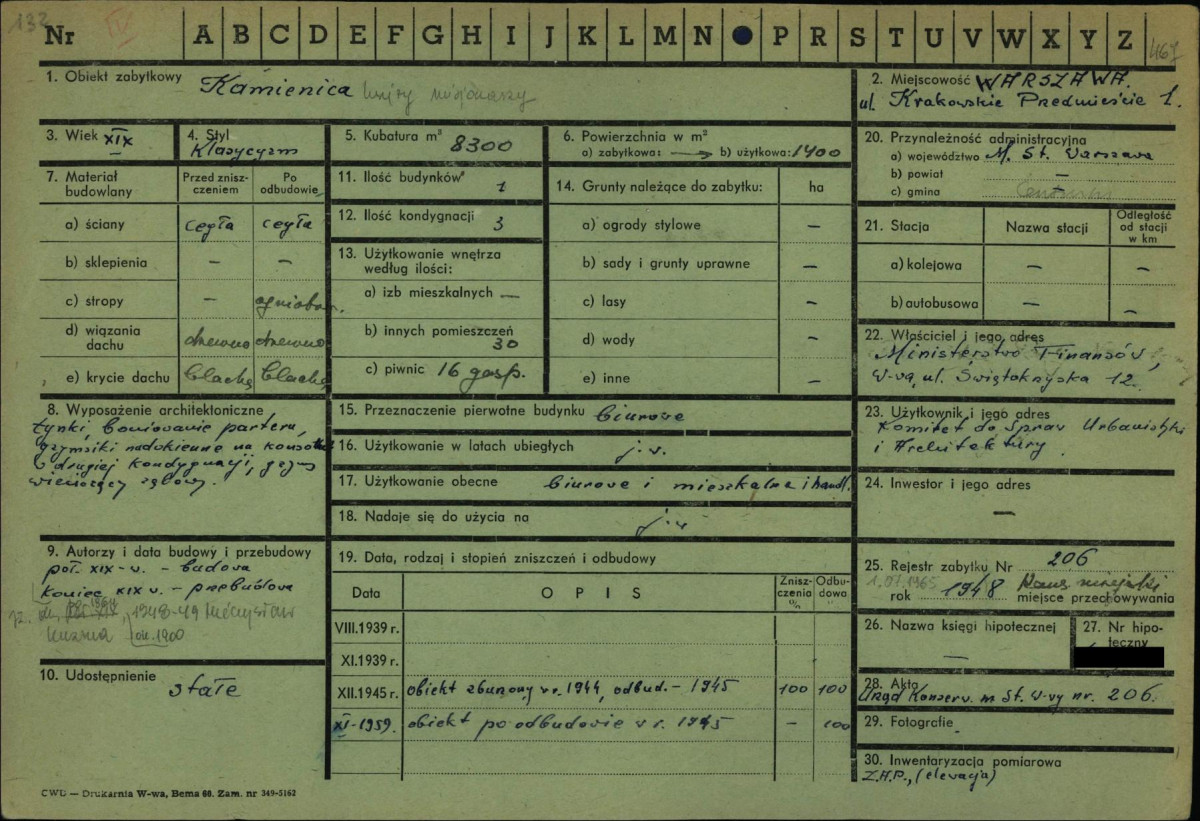 132
Nr A B C D E F G H I J K L M N P R S T U V W X Y Z
467
1. Obiekt zabytkowy Kamienica
2. Miejscowość WARSZAWA.
ul. Krakowskie Przedmieście 1.
3. Wiek XIX
4. Styl
Klasycyzm
5. Kubatura m³ 8300
6. Powierzchnia w m²
a) zabytkowa: b) użytkowa: 1400
20. Przynależność administracyjna
a) województwo M. St. Warszawa
b) powiat —
c) gmina
7. Materiał budowlany
Przed zniszczeniem
Po odbudowie
a) ściany cegła cegła
b) sklepienia — —
c) stropy —
d) wiązania dachu drewno drewno
e) krycie dachu blacha blacha
11. Ilość budynków 1
12. Ilość kondygnacji 3
13. Użytkowanie wnętrza
według ilości:
a) izb mieszkalnych —
b) innych pomieszczeń
30
c) piwnic 16 gosp.
14. Grunty należące do zabytku: ha
a) ogrody stylowe —
b) sady i grunty uprawne —
c) lasy —
d) wody —
e) inne —
21. Stacja Nazwa stacji Odległość od stacji w km
a) kolejowa — —
b) autobusowa — —
22. Właściciel i jego adres
Ministerstwo Finansów,
W-wa, ul. Świętokrzyska 12.
8. Wyposażenie architektoniczne
tynki, boniowanie parteru,
gzymsiki nadokienne na konsolkach
w drugiej kondygnacji, gzyms
wieńczący zębowy.
15. Przeznaczenie pierwotne budynku biurowe
16. Użytkowanie w latach ubiegłych j.w.
17. Użytkowanie obecne biurowe i mieszkalne i handl.
18. Nadaje się do użycia na j.w
23. Użytkownik i jego adres
Komitet do Spraw Urbanistyki
i Architektury.
24. Inwestor i jego adres
—
9. Autorzy i data budowy i przebudowy
poł. XIX-w. - budowa
koniec XIX w. - przebudowa
1948-49 Mieczysław
Kuzma ok. 1900
10. Udostępnienie
stałe
19. Data, rodzaj i stopień zniszczeń i odbudowy
Data OPIS Zniszczenia % Odbudowa %
VIII.1939 r.
XI.1939 r.
XII.1945 r. obiekt zburzony w r. 1944, odbud. - 1945 100 100
XI-1959. obiekt po odbudowie w r. 1945 — 100
25. Rejestr zabytku Nr 206
1.07.1965
rok 1948 miejsce przechowywania
26. Nazwa księgi hipotecznej
—
27. Nr hipoteczny
28. Akta
Urząd Konserw. m St. W-wy nr. 206.
29. Fotografie
30. Inwentaryzacja pomiarowa
Z.A.P., (elewacja)
CWD — Drukarnia W-wa, Bema 60. Zam. nr 349-5162